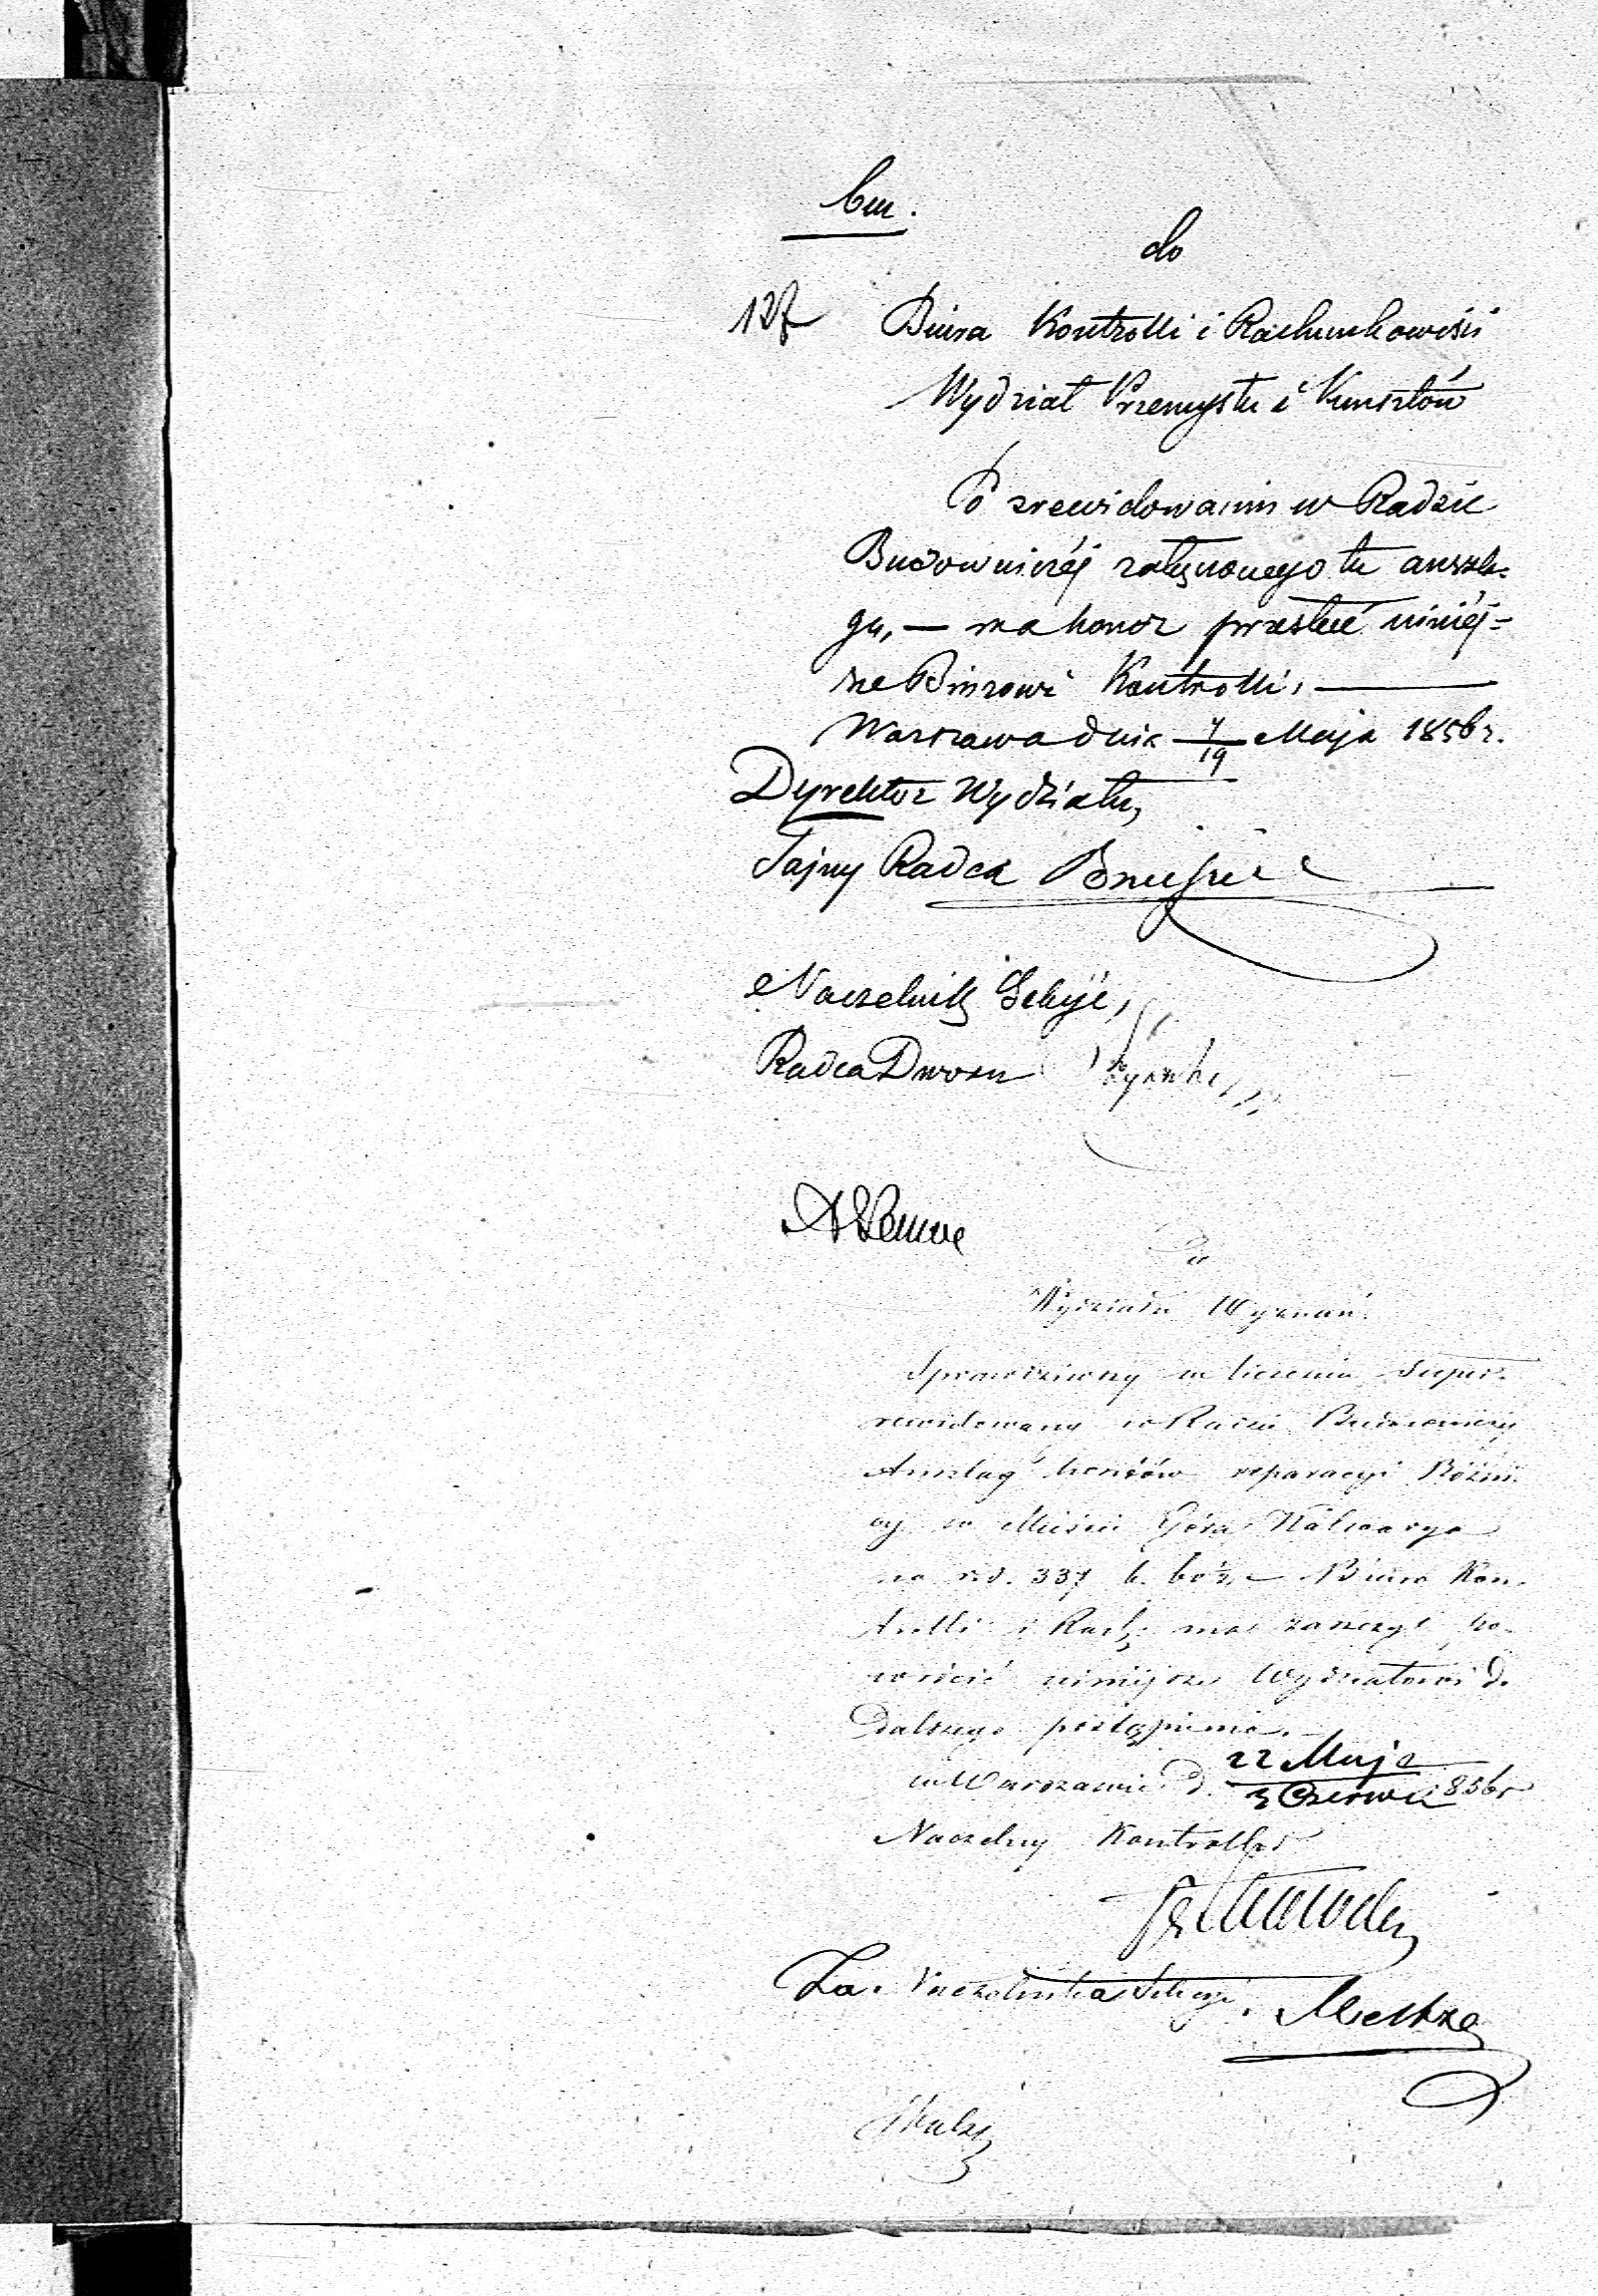 do
Biura Kontrolli i Rachunkowości
Wydział Przemysłu i Kunsztów
Po zrewidowaniu w Radzie
Budowniczéj załączonego tu anszla-
gu, — ma honor przesłać niniéj-
sze Biurowi Kontrolli, —
Warszawa dnia 7/19 Maja 1856 r.
Dyrektor Wydziału,
Tajny Radca
Naczelnik Sekcji,
Radca Dworu
Do
Wydziału Wyznań
Sprawdziwszy w liczeniu Super-
rewidowany w Radzie Budowniczej
Anszlag kosztów reparacyi Bóżni-
cy w Mieście Góra Kalwarya
na rs. 337 k. 60½ — Biuro Kon-
trolli i Rach: ma zaszczyt po-
wrócić niniejsze Wydziałowi do
Dalszego postąpienia.
w Warszawie d. 22 Maja
3 Czerwca 1856 r
Naczelny Kontroller
Za. Naczelnika Sekcyi.